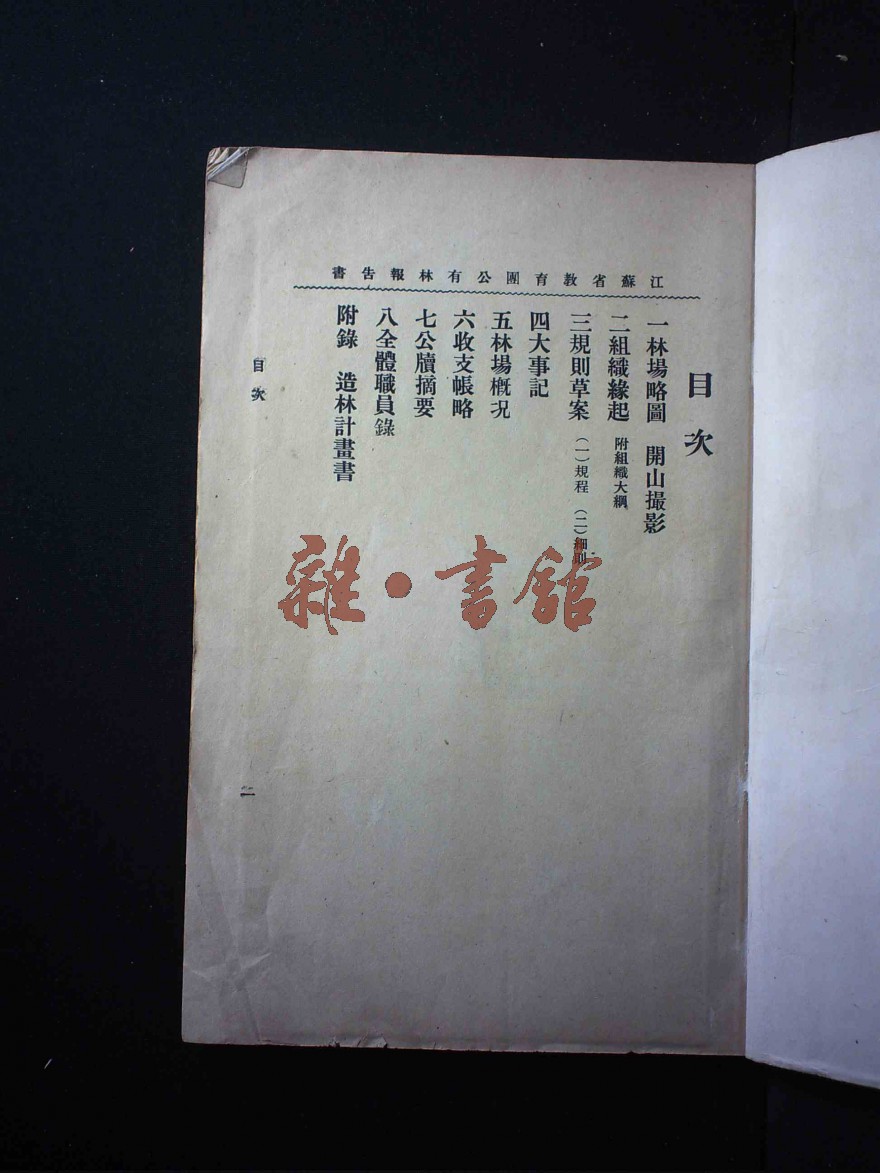 江蘇省教育團公有林報告書
目次
一林場略圖　開山撮影
二組織緣起　附組織大綱
三規則草案　（一）規程　（二）細則
四大事記
五林場槪况
六收支帳略
七公牘摘要
八全體職員錄
附錄　造林計畫書
目次
一
雜·書館